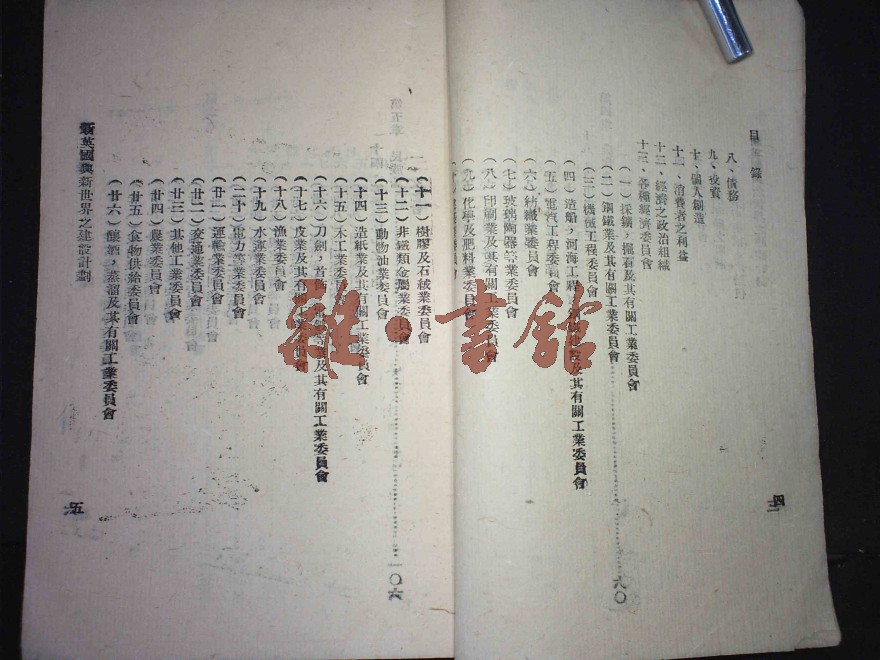 目　錄
八、債務
九、投資
十、個人創造
十一、消費者之利益
十二、經濟之政治組織
十三、各種經濟委員會
(一)採鑛，掘石及其有關工業委員會
(二)鋼鐵業及其有關工業委員會
(三)機械工程委員會
(四)造船，河海工程，建設及其有關工業委員會
(五)電汽工程委員會
(六)紡織業委員會
(七)玻璃陶器等業委員會
(八)印刷業及其有關工業委員會
(九)化學及肥料業委員會
四
(十一)樹膠及石絨業委員會
(十二)非鐵類金屬業委員會
(十三)動物油業委員會
(十四)造紙業及其有關工業委員會
(十五)木工業委員會
(十六)刀劍，首飾，等業及其有關工業委員會
(十七)皮業及其有關工業委員會
(十八)漁業委員會
(十九)水運業委員會
(二十)電力等業委員會
(廿一)運輸業委員會
(廿二)交通業委員會
(廿三)其他工業委員會
(廿四)農業委員會
(廿五)食物供給委員會
(廿六)釀酒，蒸溜及其有關工業委員會
新英國與新世界之建設計劃
五
雜·書館